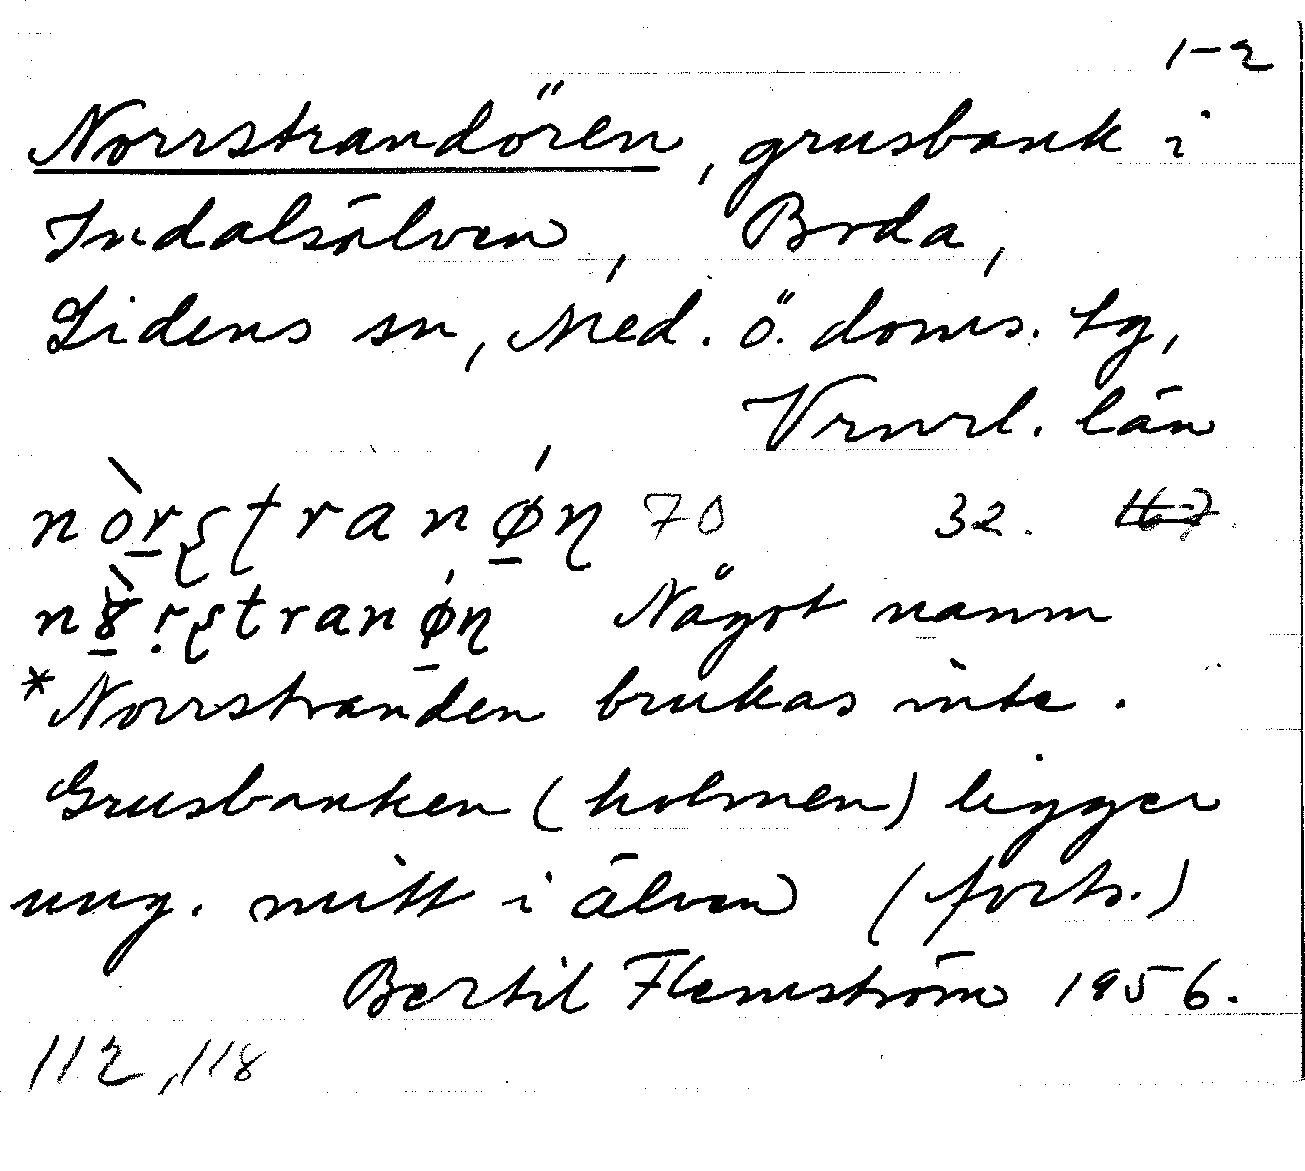 1-2
Norrstrandören, grusbank i
Indalsälven, Boda,
Lidens sn, Med. ö. doms. tg,
Vrnrl. län
70 32. 117
Något namn
*Norrstranden brukas inte.
Grusbanken (holmen) ligger
ung. mitt i älven (forts.)
Bertil Flemström 1956.
112, 118